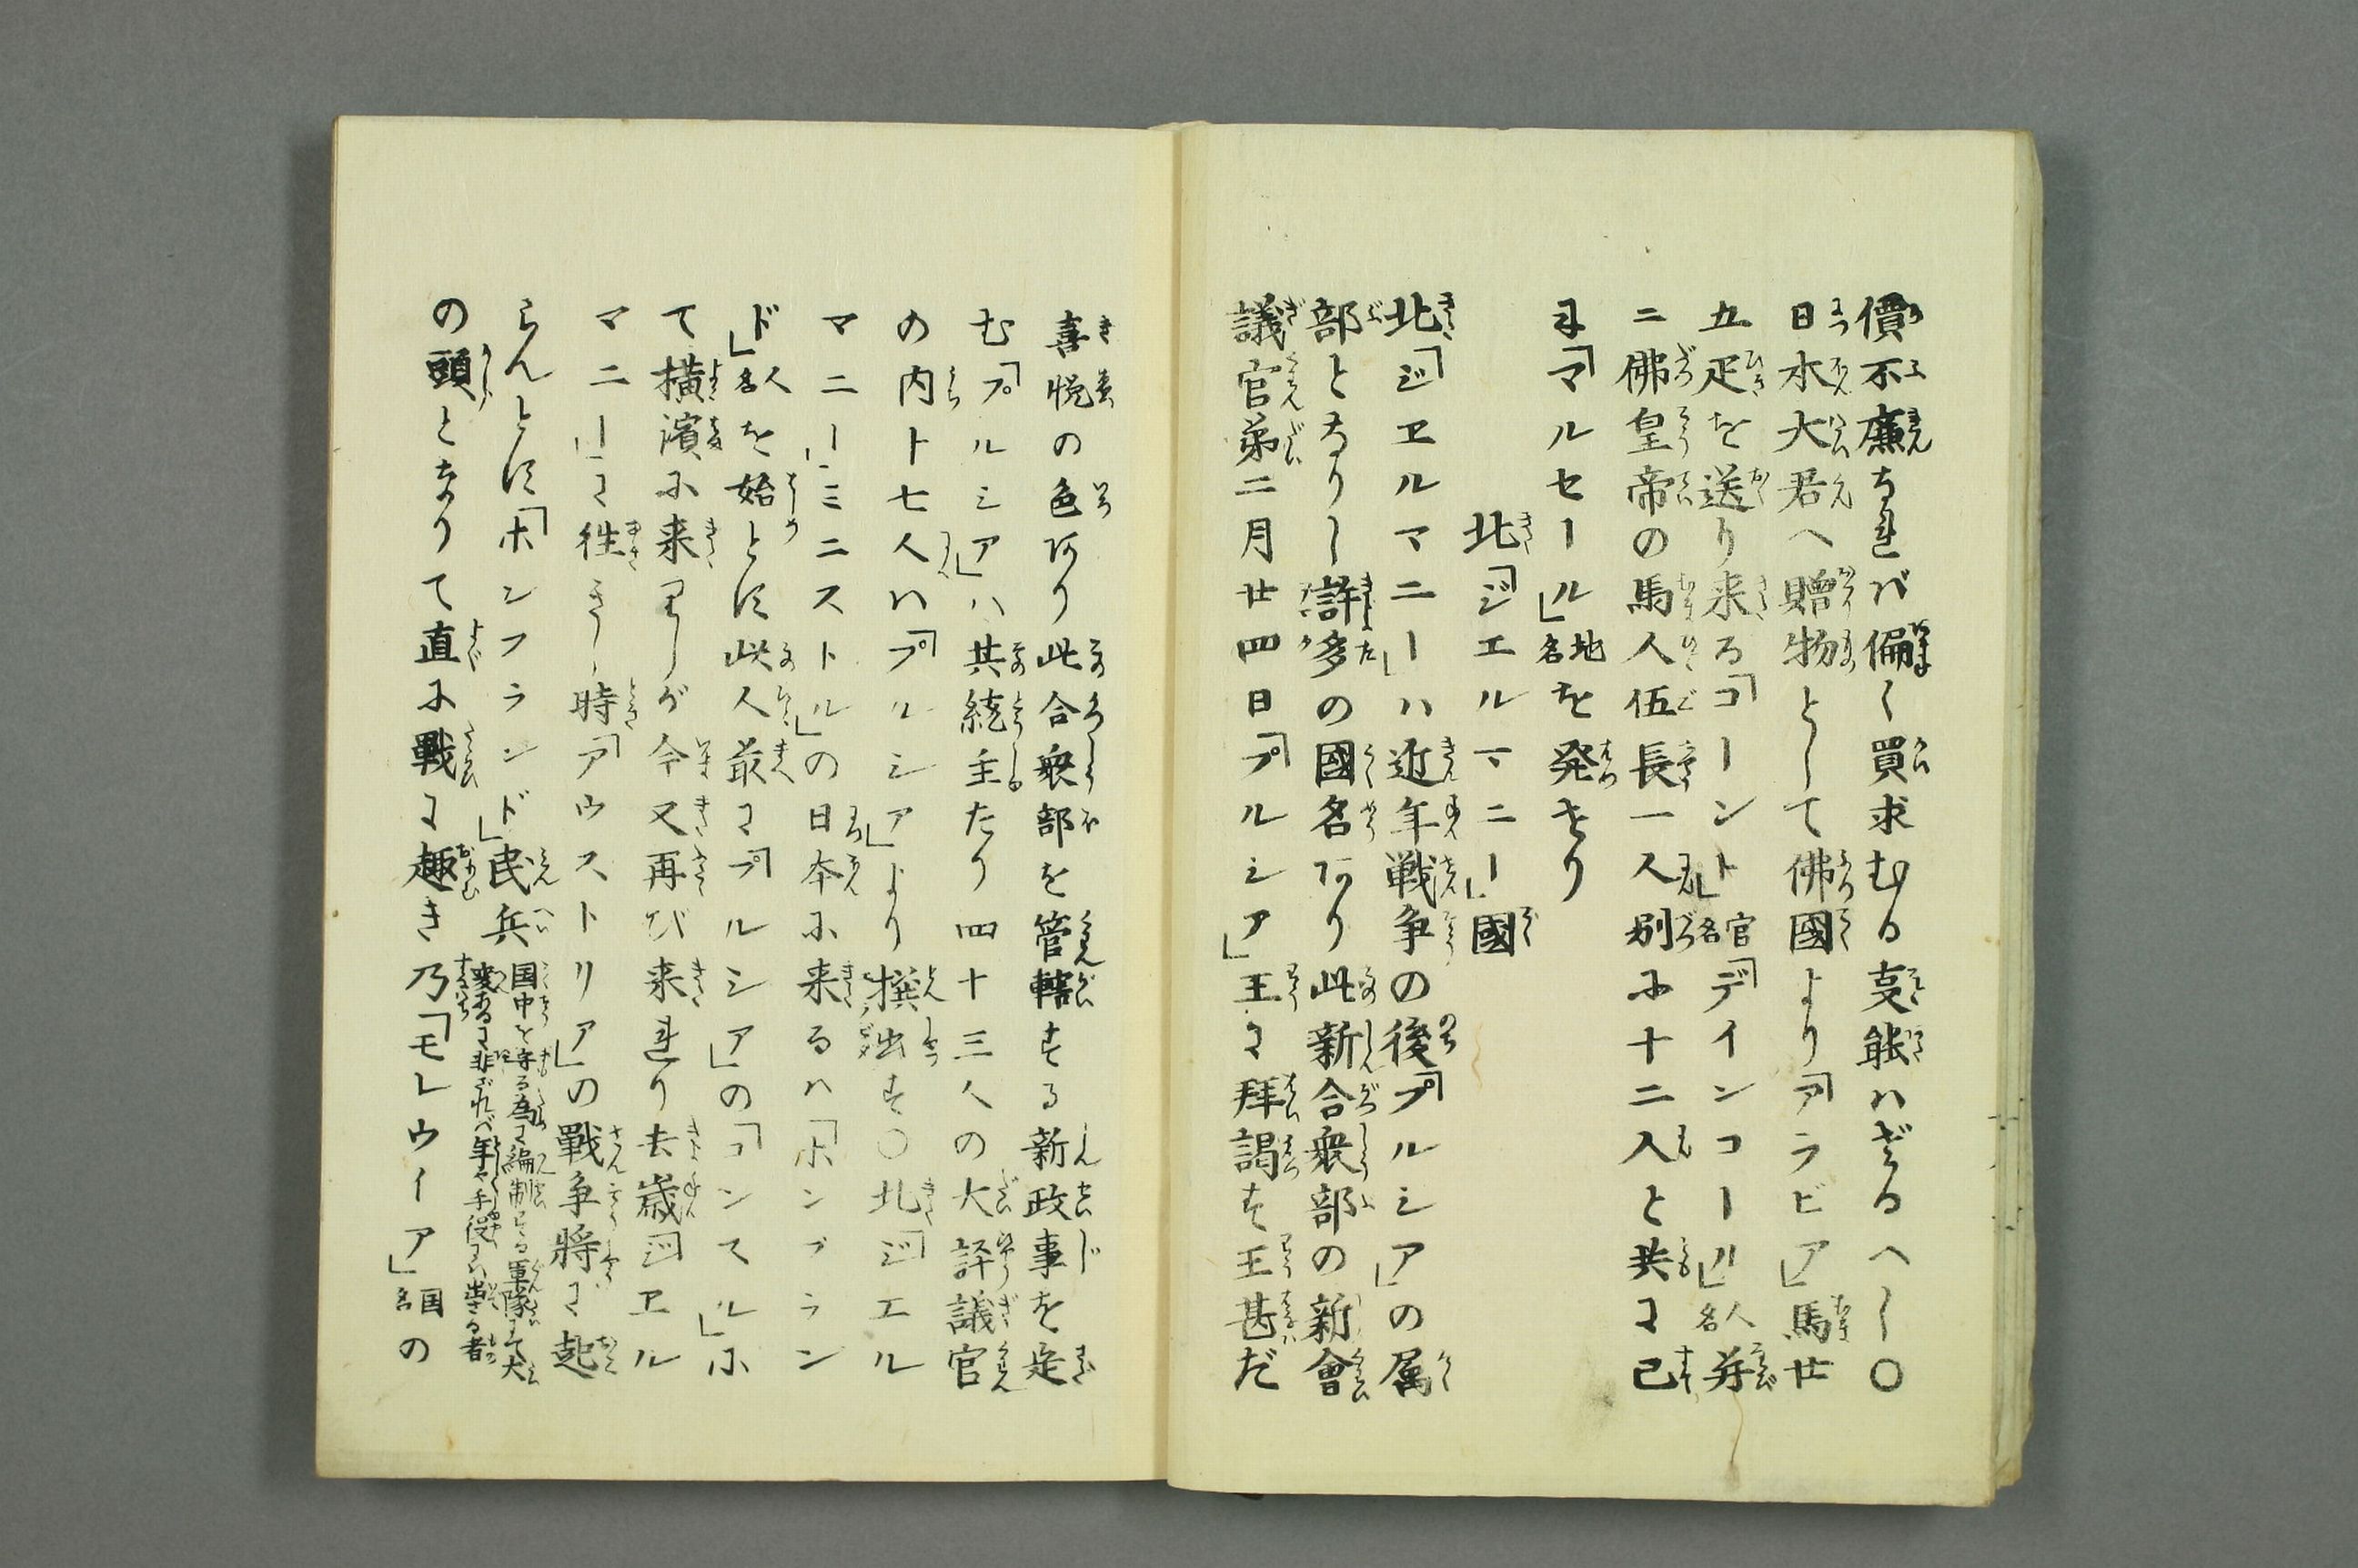 價不廉なれバ偏く買求むる支能ハざるへし○
日本大君へ贈物として佛國より「アラビア」馬廿
五疋を送り来る「コーント」官名「デインコール」人名并
ニ佛皇帝の馬人伍長一人別に十二人と共に已
に「マルセール」地名を発せり
北「ジエルマニー」國
北「ジヱルマニー」ハ近年戦争の後「プルシア」の属
部となりし許多の國名あり此新合衆部の新會
議官第二月廿四日「プルシア」王に拝謁す王甚だ
喜悦の色あり此合衆部を管轄する新政事を定
む「プルシア」ハ其統主たり四十三人の大評議官
の内ト七人ハ「プルシア」より撰出す○北「ジエル
マニー」ミニストル」の日本に来るハ「ホンブラン
ド」人名を始とす此人最に「プルシア」の「コンスル」に
て横濱に来りしが今又再び来れり去歳「ジヱル
マニー」に往きし時「アウストリア」の戰争將に起
らんとす「ホンフランド」民兵国中を守る為に編制する軍隊にて大
変あるに非ざれバ年々手役にハ出さる者
の頭となりて直に戰に趣き乃「モレウイーア」国名の